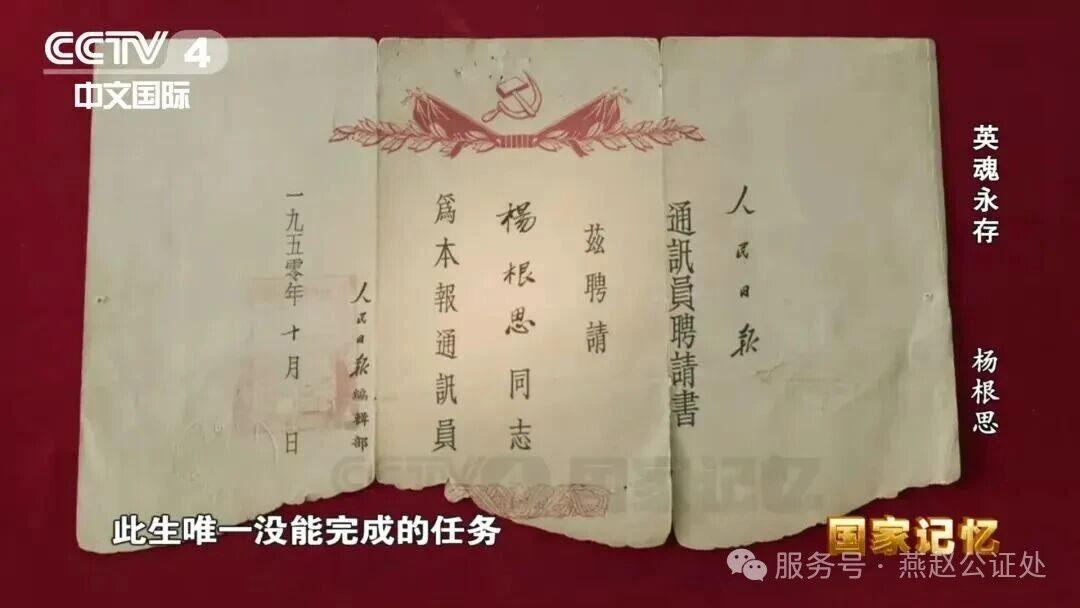 CCTV 4
中文国际
英魂永存 杨根思
人民日报
通訊員聘請書
茲聘請
楊根思同志
爲本報通訊員
人民日报編輯部
一九五零年十月 日
CCTV 4 国家记忆
此生唯一没能完成的任务
国家记忆
服务号·燕赵公证处